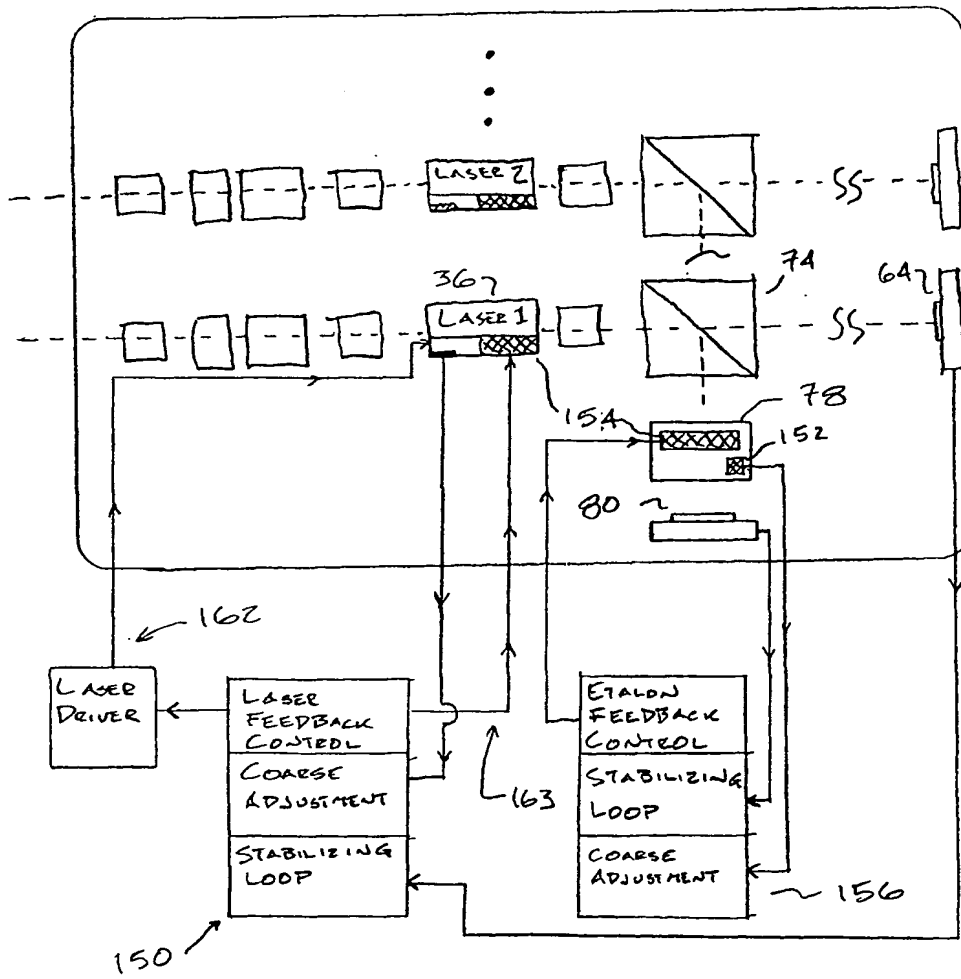 LASER 2
74
64
36
LASER 1
154
78
152
80
162
LASER
DRIVER
LASER
FEEDBACK
CONTROL
COARSE
ADJUSTMENT
STABILIZING
LOOP
163
ETALON
FEEDBACK
CONTROL
STABILIZING
LOOP
COARSE
ADJUSTMENT
156
150